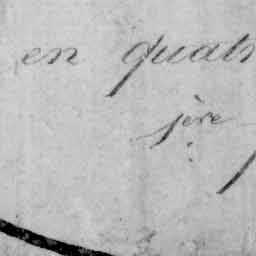 en quatr
1ère